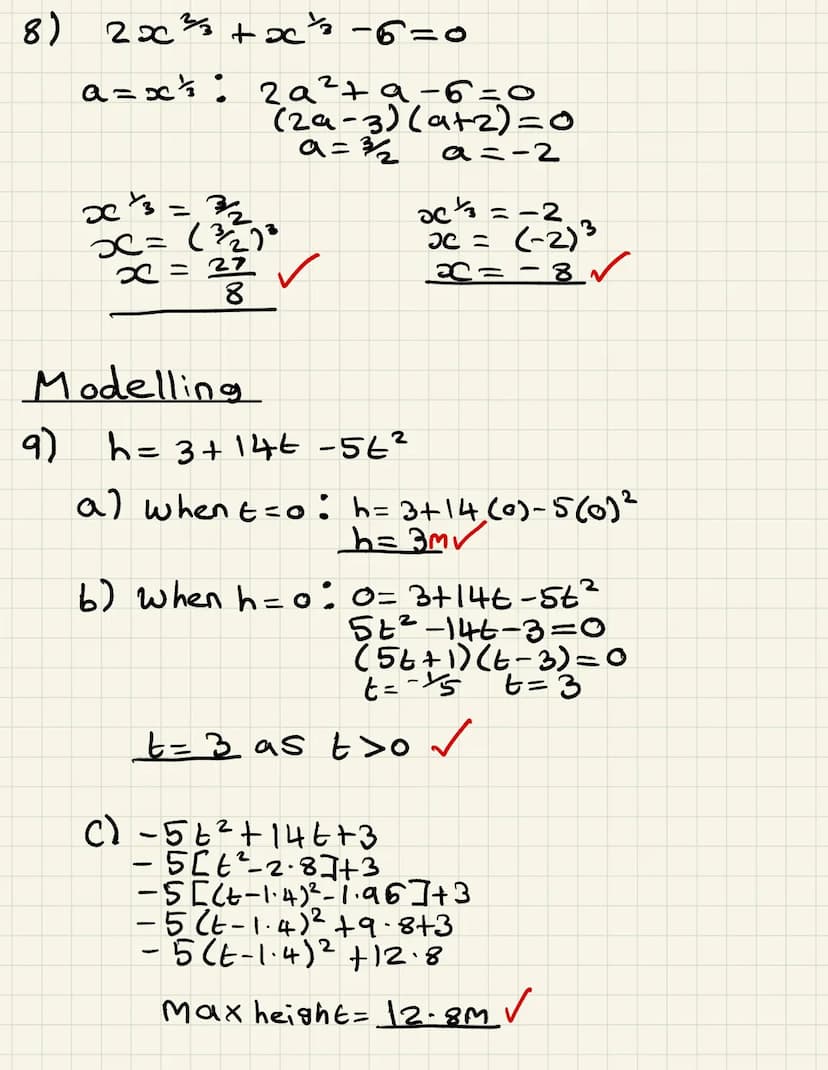 8) 2x^⅔ + x^⅓ - 6 = 0
a = x^⅓ : 2a² + a - 6 = 0
(2a - 3)(a + 2) = 0
a = 3/2 a = -2
x^⅓ = 3/2
x = (3/2)³
x = 27/8 ✓
x^⅓ = -2
x = (-2)³
x = -8 ✓
Modelling
9) h = 3 + 14t - 5t²
a) when t = 0 : h = 3 + 14(0) - 5(0)²
h = 3m ✓
b) when h = 0 : 0 = 3 + 14t - 5t²
5t² - 14t - 3 = 0
(5t + 1)(t - 3) = 0
t = -1/5 t = 3
t = 3 as t > 0 ✓
c) -5t² + 14t + 3
-5[t² - 2.8] + 3
-5[(t - 1.4)² - 1.96] + 3
-5(t - 1.4)² + 9.8 + 3
-5(t - 1.4)² + 12.8
Max height = 12.8m ✓